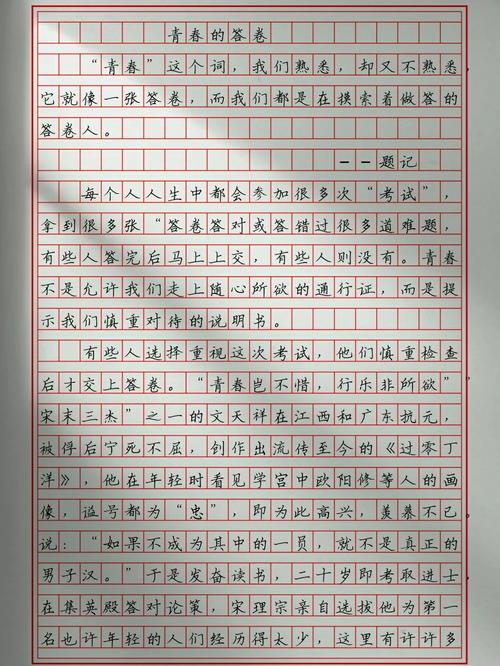 青春的答卷
“青春”这个词,我们熟悉,却又不熟悉,
它就像一张答卷,而我们都是在摸索着做答的
答卷人。
——题记
每个人人生中都会参加很多次“考试”,
拿到很多张“答卷答对或答错过很多道难题,
有些人答完后马上上交,有些人则没有。青春
不是允许我们走上随心所欲的通行证,而是提
示我们慎重对待的说明书。
有些人选择重视这次考试,他们慎重检查
后才交上答卷。“青春岂不惜,行乐非所欲”“
宋末三杰”之一的文天祥在江西和广东抗元,
被俘后宁死不屈,创作出流传至今的《过零丁
洋》,他在年轻时看见学宫中欧阳修等人的画
像,谥号都为“忠”,即为此高兴,羡慕不已。
说:“如果不成为其中的一员,就不是真正的
男子汉。”于是发奋读书,二十岁即考取进士,
在集英殿答对论策,宋理宗亲自选拔他为第一
名也许年轻的人们经历得太少,这里有许许多